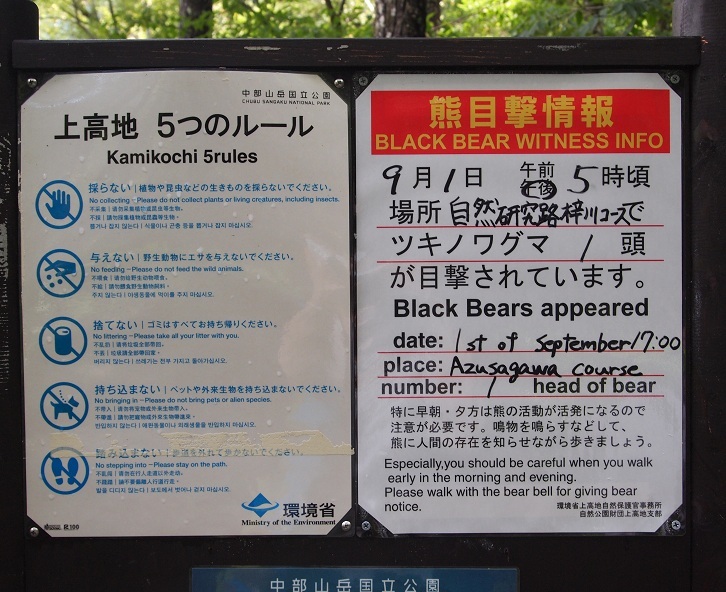 中部山岳国立公園
CHUBU SANGAKU NATIONAL PARK
上高地 5つのルール
Kamikochi 5rules
採らない | 植物や昆虫などの生きものを採らないでください。
No collecting－Please do not collect plants or living creatures, including insects.
不采集 | 请勿采集植物或昆虫等生物。
不採 | 請勿採集植物或昆蟲等生物。
与えない | 野生動物にエサを与えないでください。
No feeding－Please do not feed the wild animals.
不喂食 | 请勿给野生动物喂食。
不給 | 請勿餵食野生動物飼料。
주지 않는다 | 야생동물에 먹이를 주지 마십시오.
捨てない | ゴミはすべてお持ち帰りください。
No littering－Please take all your litter with you.
不乱扔 | 请将垃圾全部带回。
不丟 | 垃圾請全部帶回家。
버리지 않는다 | 쓰레기는 전부 가지고 돌아가십시오.
持ち込まない | ペットや外来生物を持ち込まないでください。
No bringing in－Please do not bring pets or alien species.
踏み込まない | 歩道を外れて歩かないでください。
No stepping into－Please stay on the path.
R100
環境省
Ministry of the Environment
熊目撃情報
BLACK BEAR WITNESS INFO
9月1日 午前 午後 5時頃
場所 自然研究路梓川コースで
ツキノワグマ 1 頭
が目撃されています。
Black Bears appeared
date: 1st of September 17:00
place: Azusagawa course
number: 1 head of bear
特に早朝・夕方は熊の活動が活発になるので
注意が必要です。鳴物を鳴らすなどして、
熊に人間の存在を知らせながら歩きましょう。
Especially,you should be careful when you walk
early in the morning and evening.
Please walk with the bear bell for giving bear
notice.
環境省上高地自然保護官事務所
自然公園財団上高地支部
中部山岳国立公園